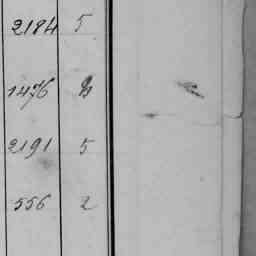 2184 5
1476
2191 5
556 2